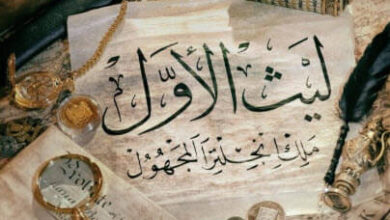 ليث الأوّل
ملك انجليترا المجهول